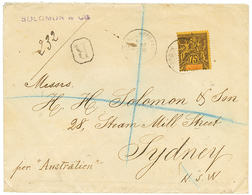 SOLOMON & Co
232
R
Messrs
H. H. Solomon & Son
28, Steam Mill Street
Sydney
N.S.W
per "Australien"
75